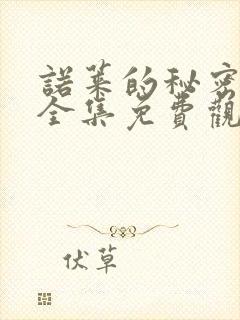 諾萊的秘密
全集免費觀
伏草